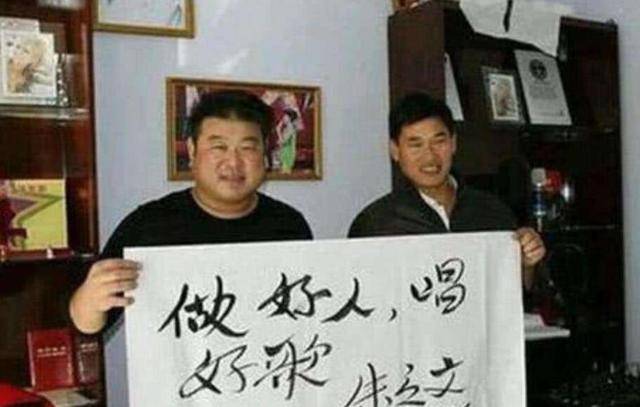 做好人，唱
好歌
朱之文